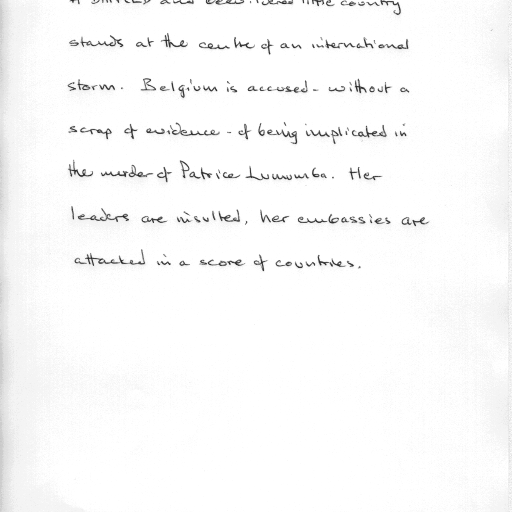 and bewildered little country
stands at the centre of an international
storm. Belgium is accused - without a
scrap of evidence - of being implicated in
the murder of Patrice Lumumba. Her
leaders are insulted, her embassies are
attacked in a score of countries.